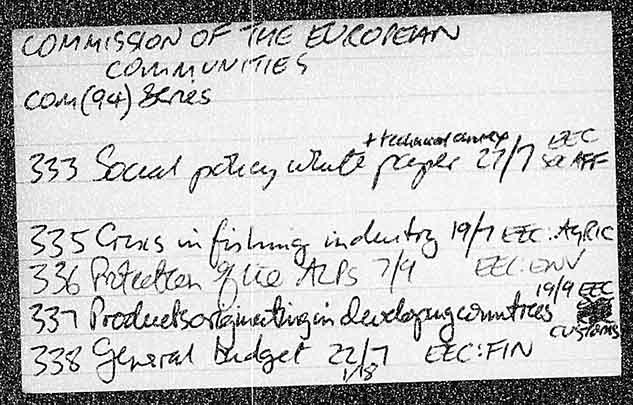 COMMISSION OF THE EUROPEAN
COMMUNITIES
COM(94) Series
+ technical annex
333 Social policy white paper 27/7 EEC
Soc AFF
335 Crisis in fishing industry 19/7 EEC: AGRIC
336 Protection of the ALPS 7/9 EEC: ENV
19/9 EEC
337 Products originating in developing countries
CUSTOMS
338 General budget 22/7 EEC: FIN
1/8